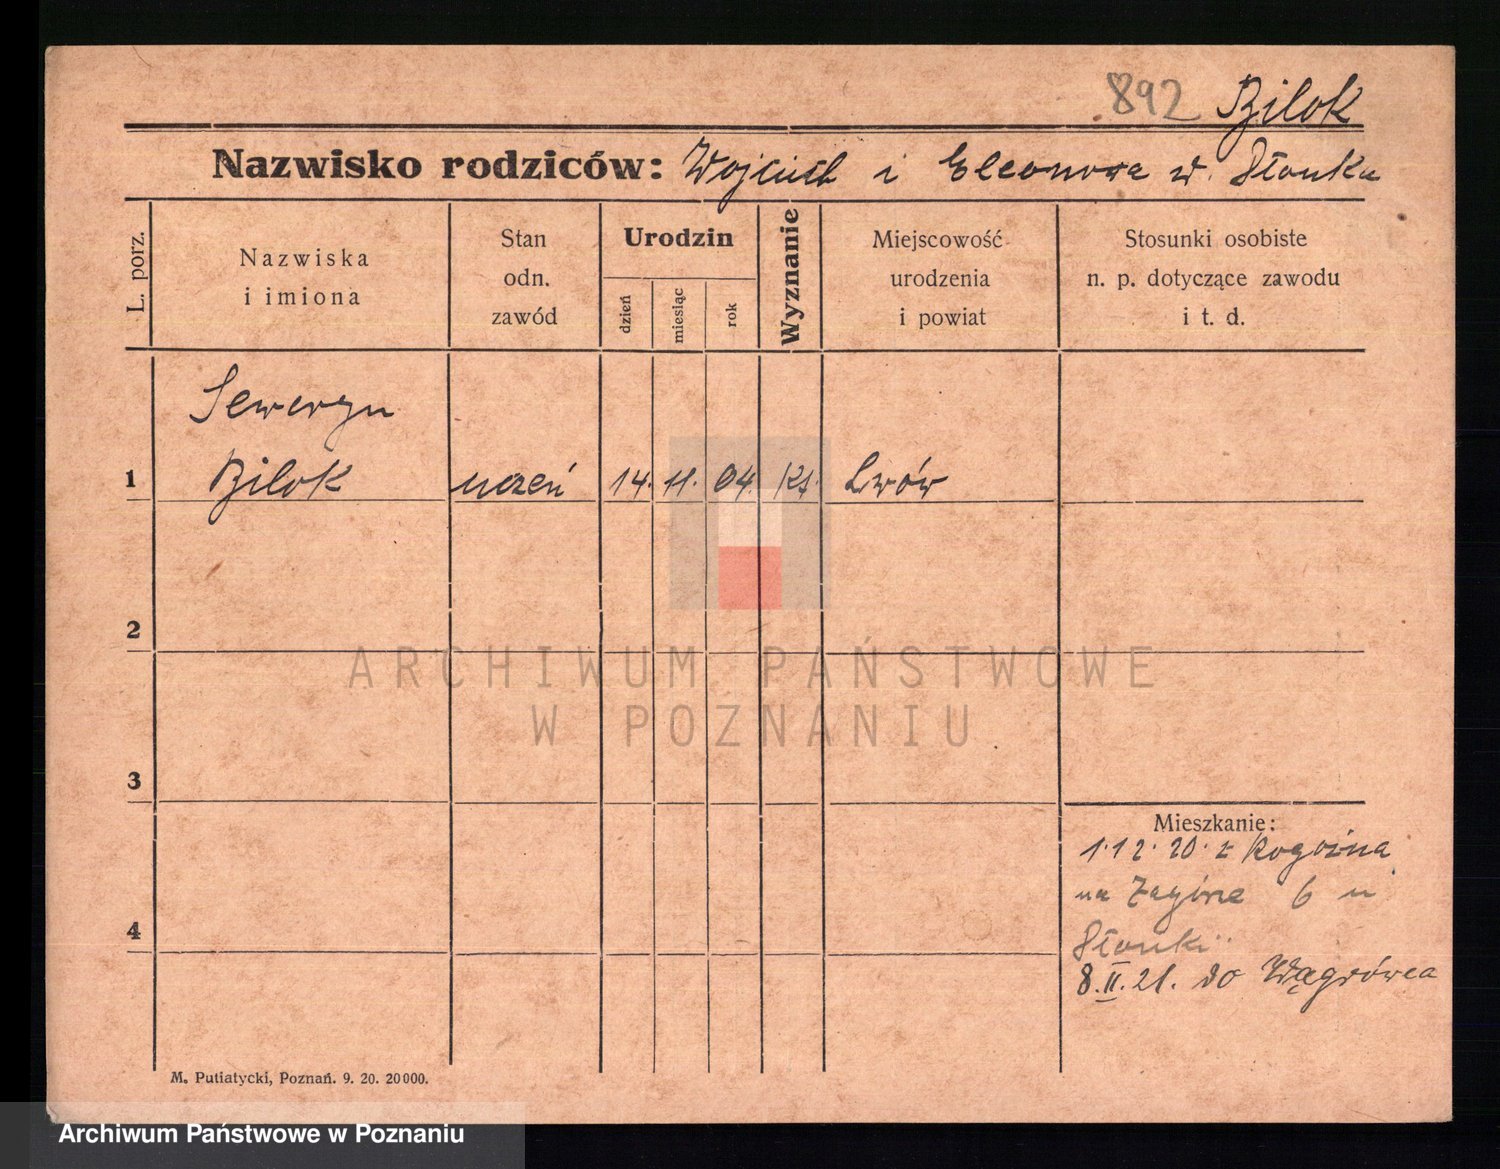 892 Bilok
Nazwisko rodziców: Wojciech i Eleonora w. Słonka
L. porz.
Nazwiska
i imiona
Stan
odn.
zawód
Urodzin
dzień
miesiąc
rok
Wyznanie
Miejscowość
urodzenia
i powiat
Stosunki osobiste
n. p. dotyczące zawodu
i t. d.
Seweryn
1 Bilok uczeń 14. 11. 04. kt. Lwów
2
ARCHIWUM PAŃSTWOWE
W POZNANIU
3
Mieszkanie:
1.12.20. z Rogoźna
na 6 u
Słonki
4
8.II.21. do Wągrówca
M. Putiatycki, Poznań. 9. 20. 20000.
Archiwum Państwowe w Poznaniu